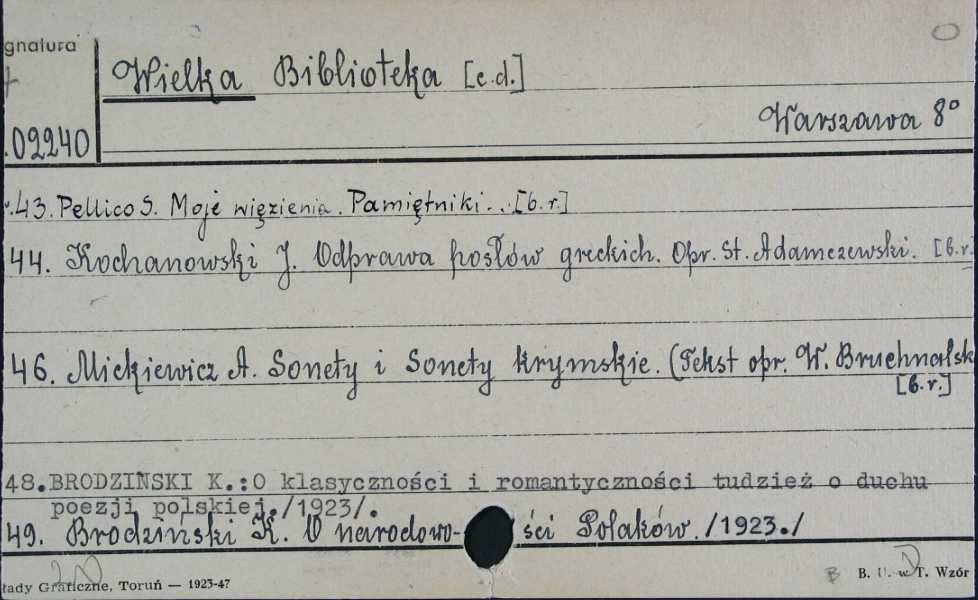 gnatura
02240
Wielka Biblioteka [c.d.]
Warszawa 8°
43. Pellico S. Moje więzienia. Pamiętniki... [b.r.]
44. Kochanowski J. Odprawa posłów greckich. Opr. St. Adamczewski. [b.r.
46. Mickiewicz A. Sonety i Sonety krymskie. (Tekst opr. W. Bruchnalsk
[b.r.]
48.BRODZIŃSKI K.:O klasyczności i romantyczności tudzież o duchu
poezji polskiej./1923/.
49. Brodziński K. O narodowo-ści Polaków. /1923./
łady Graficzne, Toruń — 1923-47
B. U. w T. Wzór